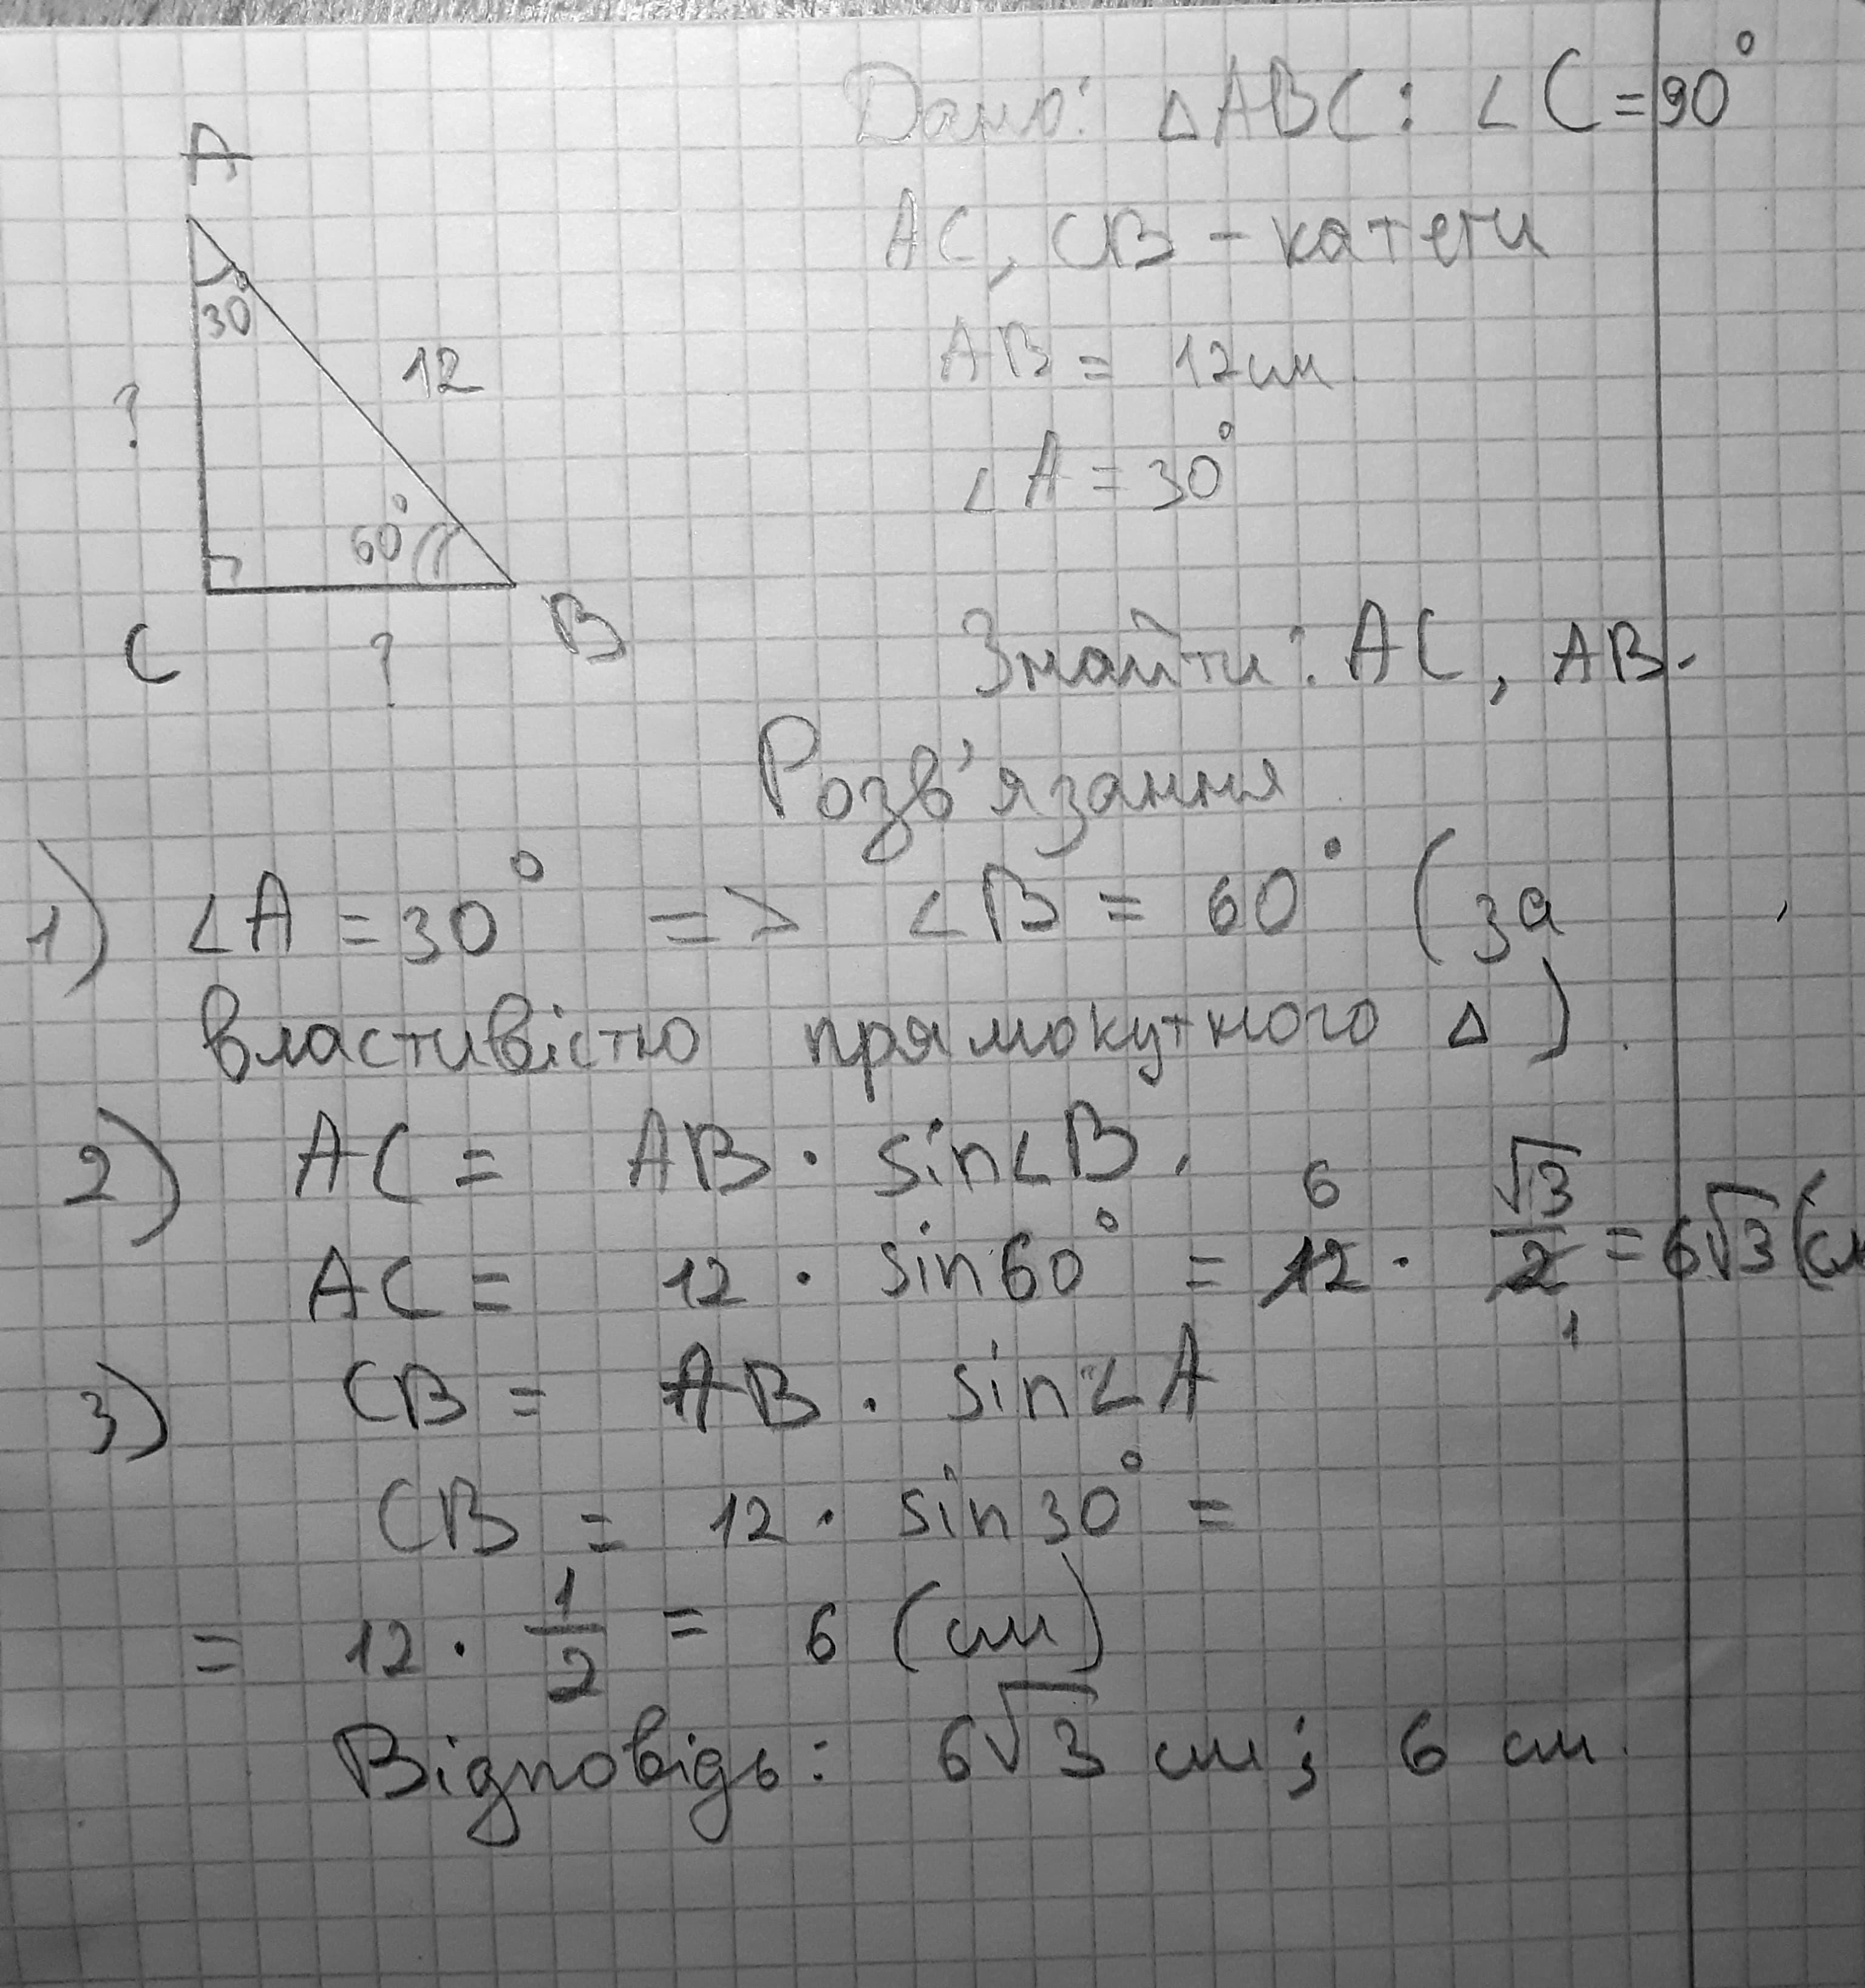 A
30°
12
?
60°
C
?
B
Дано: △ABC: ∠C=90°
AC, CB - катети
AB = 12см.
∠A = 30°
Знайти: AC, AB.
Розв'язання
1) ∠A = 30° => ∠B = 60° (за
властивістю прямокутного △).
2) AC = AB · sin∠B.
AC = 12 · sin60° = 12 · √3/2 = 6√3 (см
6
1
3) CB = AB · sin∠A
CB = 12 · sin30° =
= 12 · 1/2 = 6 (см)
Відповідь: 6√3 см; 6 см.